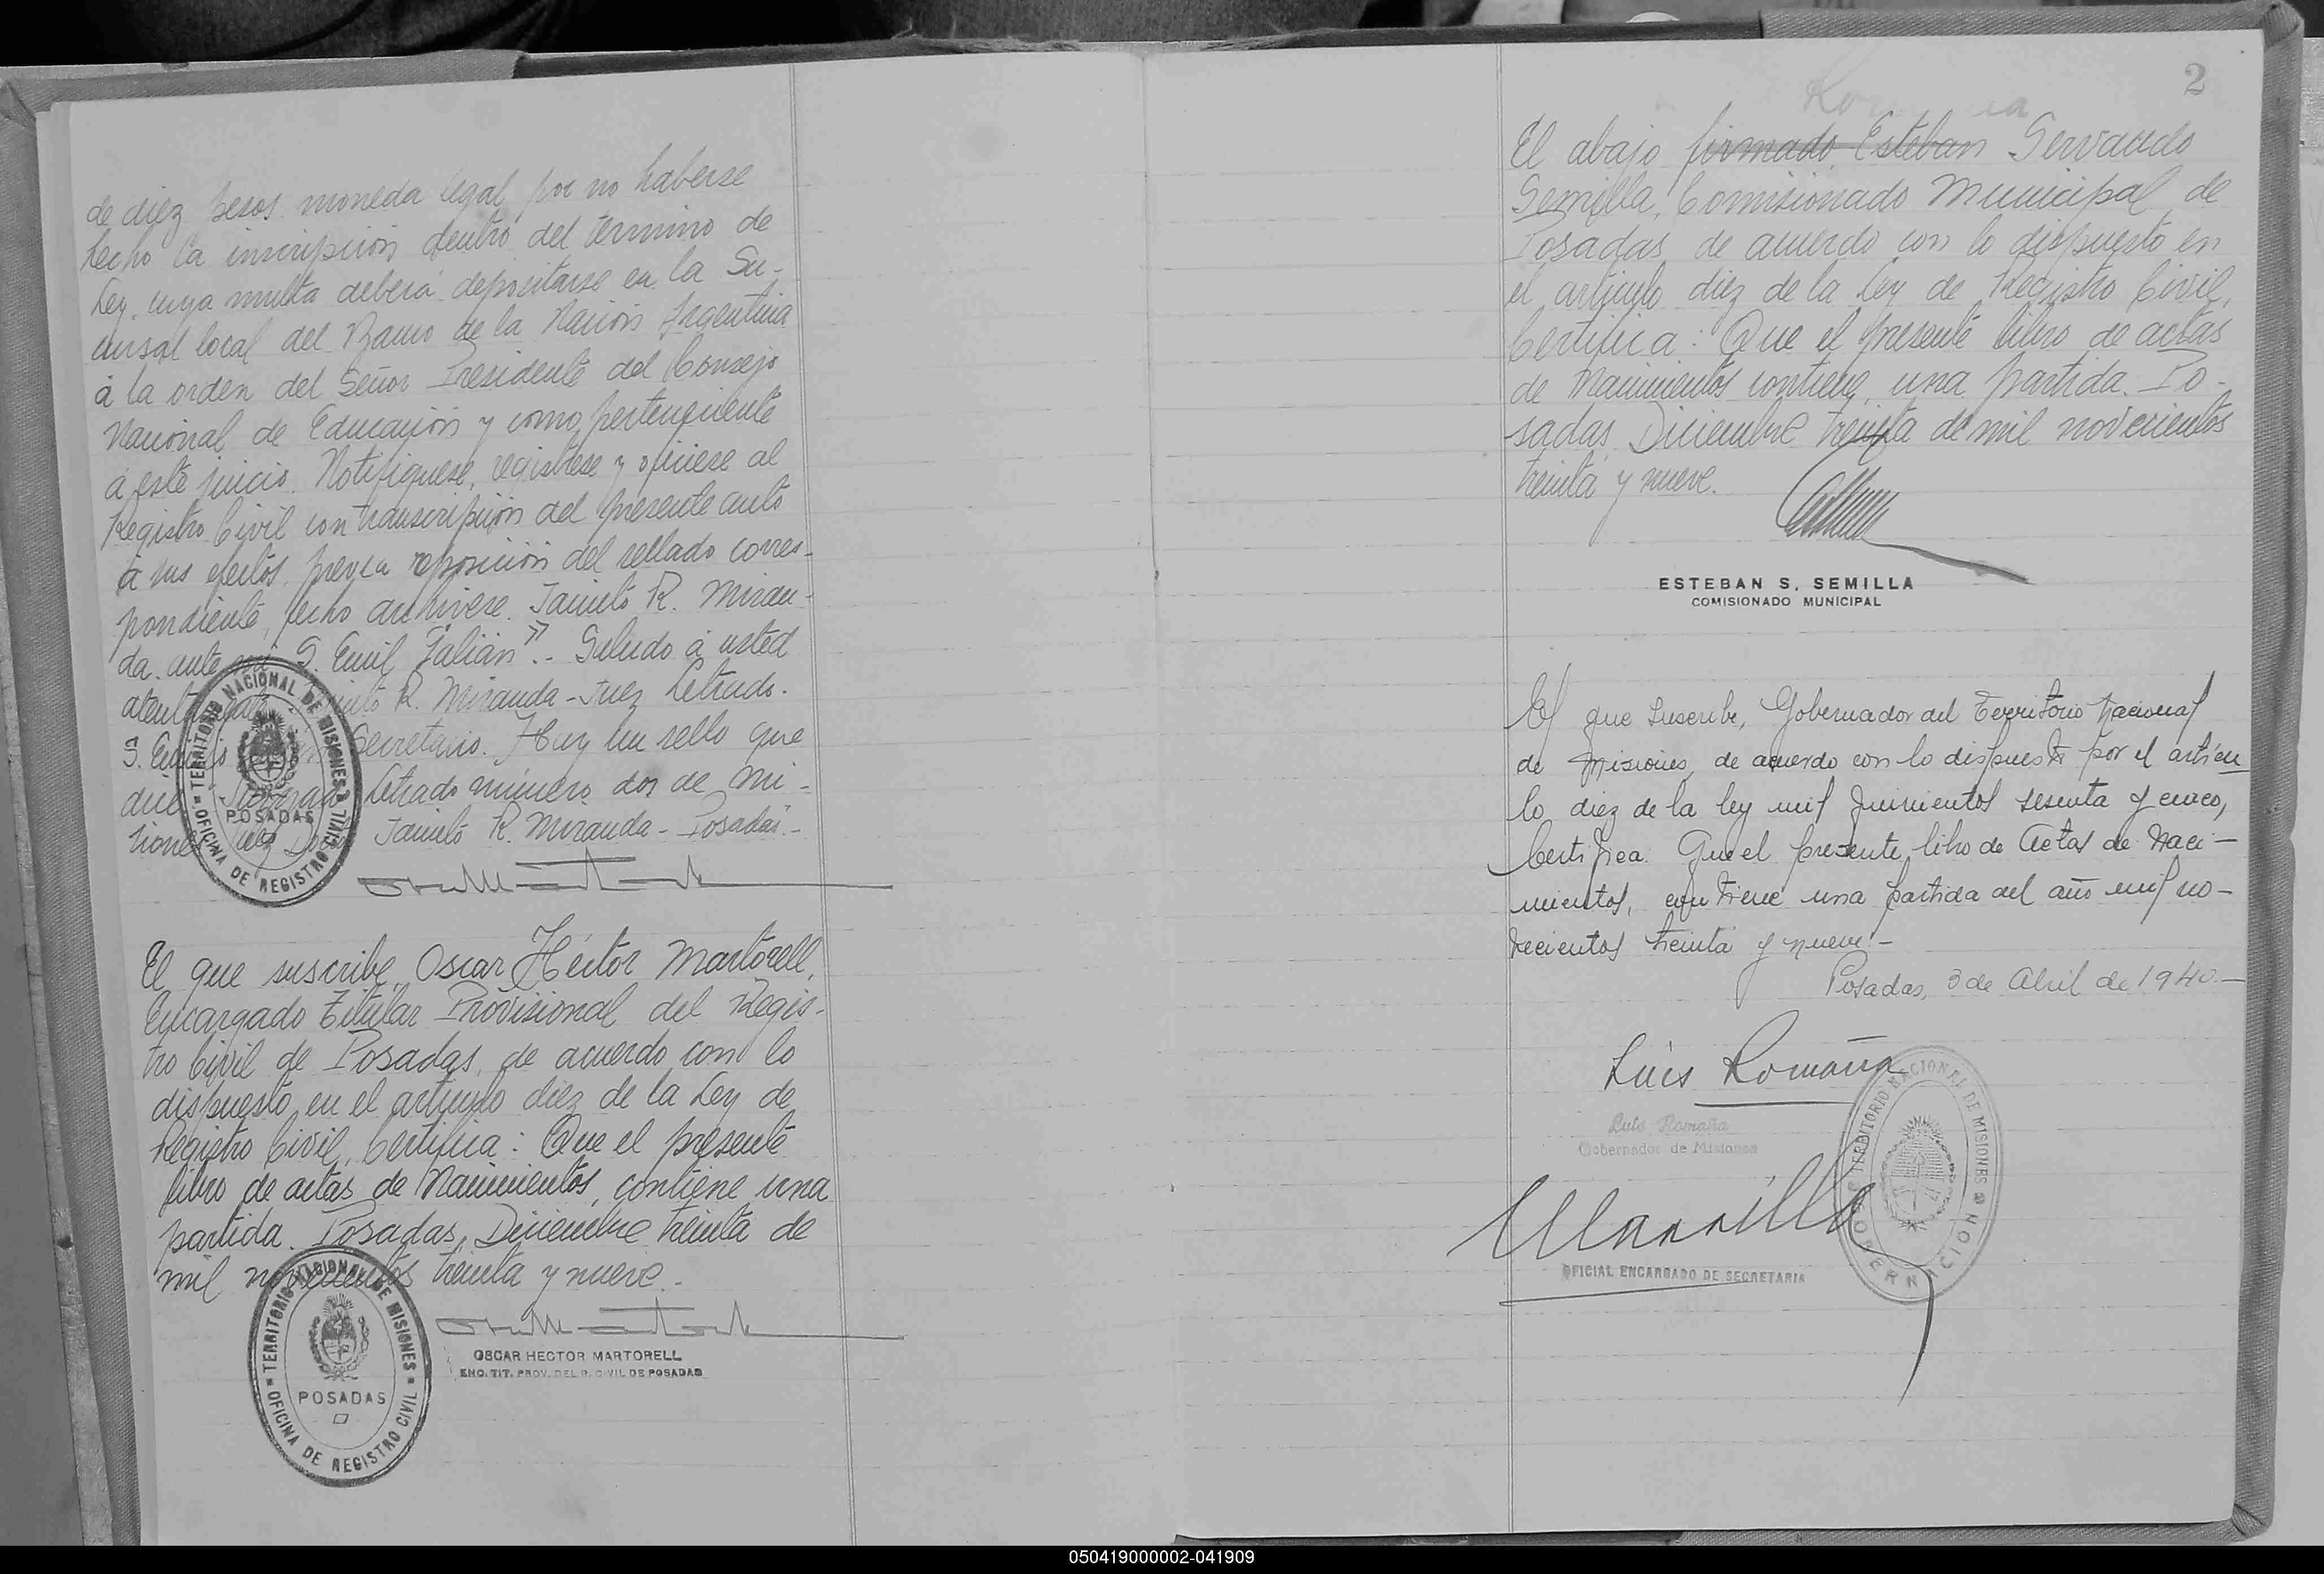 de diez pesos moneda legal por no haberse
hecho la inscripción dentro del término de
Ley, cuya multa deberá depositarse en la Su-
cursal local del Banco de la Nación Argentina
á la orden del Señor Presidente del Consejo
Nacional de Educación y como perteneciente
á este juicio. Notifíquese, regístrese y ofíciese al
Registro Civil con transcripción del presente auto
á sus efectos, previa reposición del sellado corres-
pondiente, fecho archívese. Jacinto R. Miran-
da. ante mí S. Emil Jalián".- Saludo á usted
R. Miranda - Juez Letrado.
Secretario. Hay un sello que
dice Letrado número dos de Mi-
siones Juez Jacinto R. Miranda - Posadas.-
TERRITORIO NACIONAL DE MISIONES
POSADAS
OFICINA DE REGISTRO CIVIL
El que suscribe, Oscar Héctor Martorell,
Encargado Titular Provisional del Regis-
tro Civil de Posadas, de acuerdo con lo
dispuesto en el artículo diez de la Ley de
Registro Civil, Certifica: Que el presente
libro de actas de Nacimientos, contiene una
partida. Posadas, Diciembre treinta de
mil novecientos treinta y nueve.-
TERRITORIO NACIONAL DE MISIONES
POSADAS
OFICINA DE REGISTRO CIVIL
OSCAR HECTOR MARTORELL
ENC. TIT. PROV. DEL R. CIVIL DE POSADAS
2
El abajo firmado Esteban Servando
Semilla, Comisionado Municipal de
Posadas, de acuerdo con lo dispuesto en
el artículo diez de la Ley de Registro Civil,
Certifica: Que el presente libro de actas
de Nacimientos contiene una partida. Po-
sadas, Diciembre treinta de mil novecientos
treinta y nueve.
ESTEBAN S. SEMILLA
COMISIONADO MUNICIPAL
El que suscribe, Gobernador del Territorio Nacional
de Misiones, de acuerdo con lo dispuesto por el artícu
lo diez de la ley mil quinientos sesenta y cinco,
Certifica: Que el presente libro de Actas de Naci-
mientos, contiene una partida del año mil no-
vecientos treinta y nueve.-
Posadas, 3 de Abril de 1940.-
Luis Romaña
Luis Romaña
Gobernador de Misiones
TERRITORIO NACIONAL DE MISIONES
GOBERNACION
OFICIAL ENCARGADO DE SECRETARIA
050419000002-041909